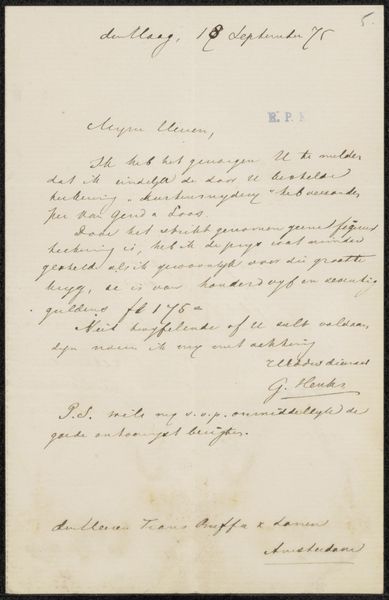 5.
den Haag, 18 September 75
R. P. K
Mijne Heeren,
Ik heb het genoegen U te melden
dat ik eindelyk de door U bestelde
teekening "Kurkensnydery" heb verzonden
per Van Gend & Loos.
Daar het strikt genomen geene figuur
teekening is, heb ik de prys wat minder
gesteld als ik gewoonlyk voor die grootte
kryg, ze is voor honderd vyf en zeventig
guldens fl 175=
Niet twyfelende of U zult voldaan
zyn noem ik my met achting
UEds dw dienaar
G. Henkes
P.S. wilt my s.v.p. onmiddellyk de
goede ontvangst berigten.
den Heeren Frans Buffa & Zonen
Amsterdam